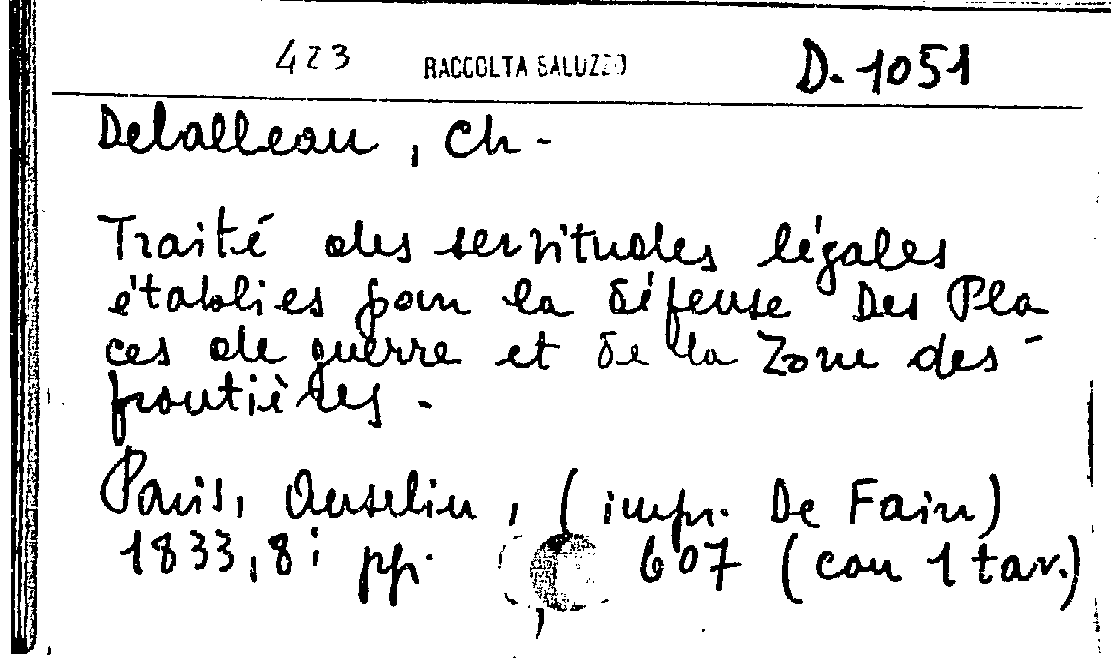 423 RACCOLTA SALUZZO D. 1051
Delalleau, Ch -
Traité des servitudes légales
établies pour la défense Des Pla
ces de guerre et de la Zone des -
frontières -
Paris, Anselin, (impr. De Fain)
1833, 8i pp. , 607 (con 1 tav.)